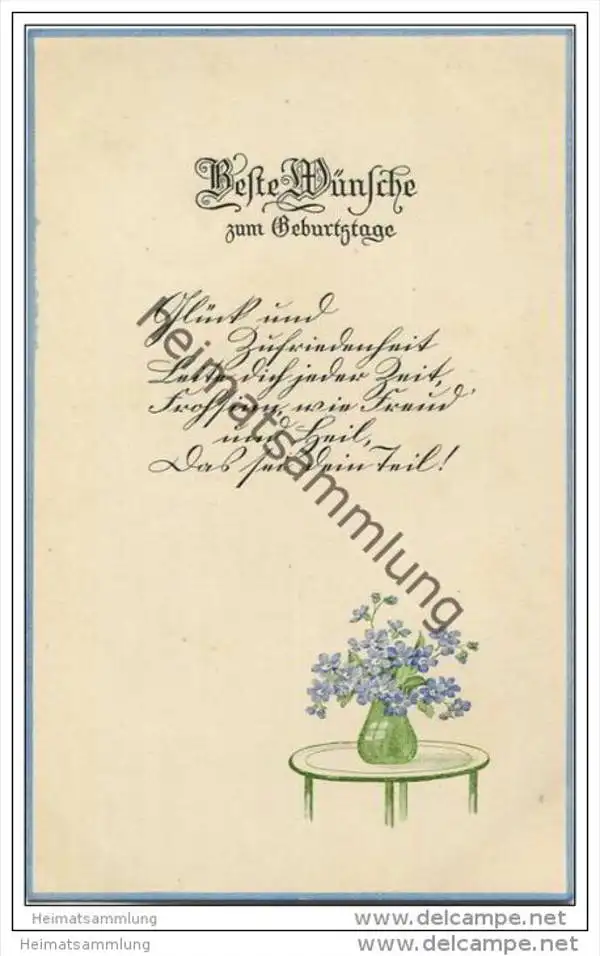 Beste Wünsche
zum Geburtstage
Glück und
Zufriedenheit
Leite dich jeder Zeit,
Frohsinn, wie Freud'
und Heil,
Das sei dein Teil!
Heimatsammlung
Heimatsammlung
www.delcampe.net
Heimatsammlung
www.delcampe.net